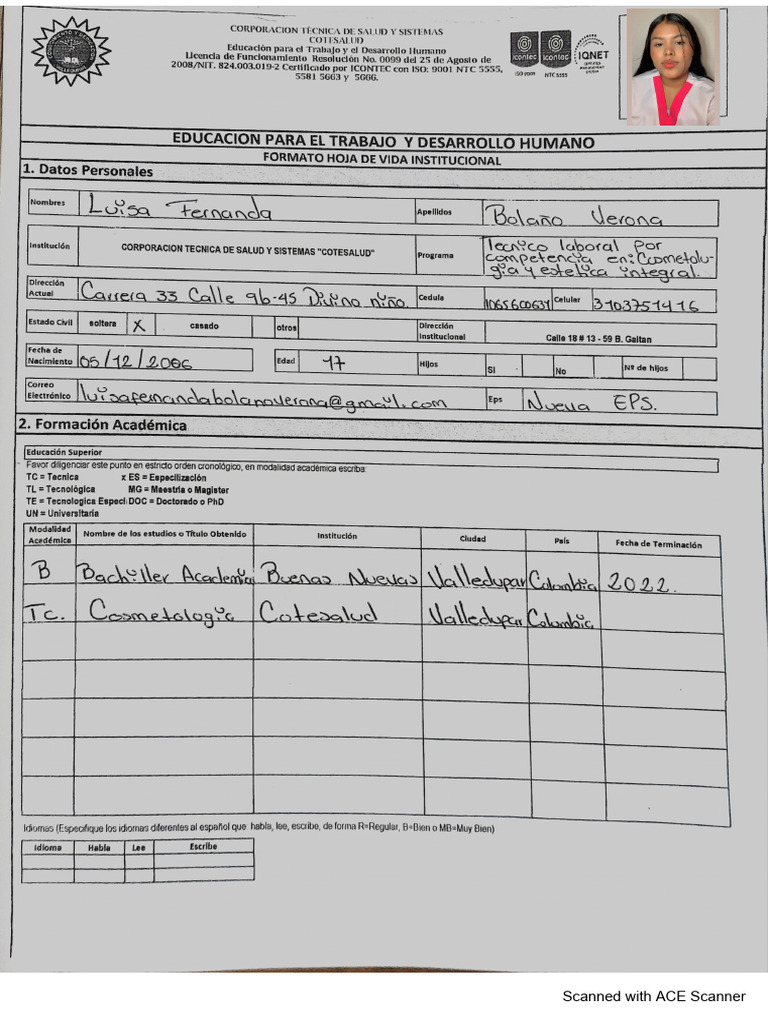 CORPORACION TÉCNICA DE SALUD Y SISTEMAS
COTESALUD
Educación para el Trabajo y el Desarrollo Humano
Licencia de Funcionamiento Resolución No. 0099 del 25 de Agosto de
2008/NIT. 824.003.019-2 Certificado por ICONTEC con ISO: 9001 NTC 5555,
5581 5663 y 5666.
icontec icontec IQNET
ISO 9001 NTC 5555
EDUCACION PARA EL TRABAJO Y DESARROLLO HUMANO
FORMATO HOJA DE VIDA INSTITUCIONAL
1. Datos Personales
Nombres Luisa Fernanda Apellidos Bolaño Verona
Institución CORPORACION TECNICA DE SALUD Y SISTEMAS "COTESALUD" Programa Tecnico laboral por
competencia en: Cosmetolo-
gia y estetica integral.
Dirección Actual Carrera 33 Calle 9b-45 Divino niño. Cedula 1065600631 Celular 3103751416
Estado Civil soltera X casado otros Dirección Institucional Calle 18 # 13 - 59 B. Gaitan
Fecha de Nacimiento 05/12/2006 Edad 17 Hijos Si No Nº de hijos
Correo Electrónico luisafernandabolanoverona@gmail.com Eps Nueva EPS.
2. Formación Académica
Educación Superior
Favor diligenciar este punto en estricto orden cronológico, en modalidad académica escriba:
TC = Tecnica x ES = Especilización
TL = Tecnológica MG = Maestria o Magister
TE = Tecnologica Especi DOC = Doctorado o PhD
UN = Universitaria
Modalidad Académica Nombre de los estudios o Título Obtenido Institución Ciudad País Fecha de Terminación
B Bachiller Academico Buenas Nuevas Valledupar Colombia 2022.
Tc. Cosmetologia Cotesalud Valledupar Colombia
Idiomas (Especifique los idiomas diferentes al español que habla, lee, escribe, de forma R=Regular, B=Bien o MB=Muy Bien)
Idioma Habla Lee Escribe
Scanned with ACE Scanner